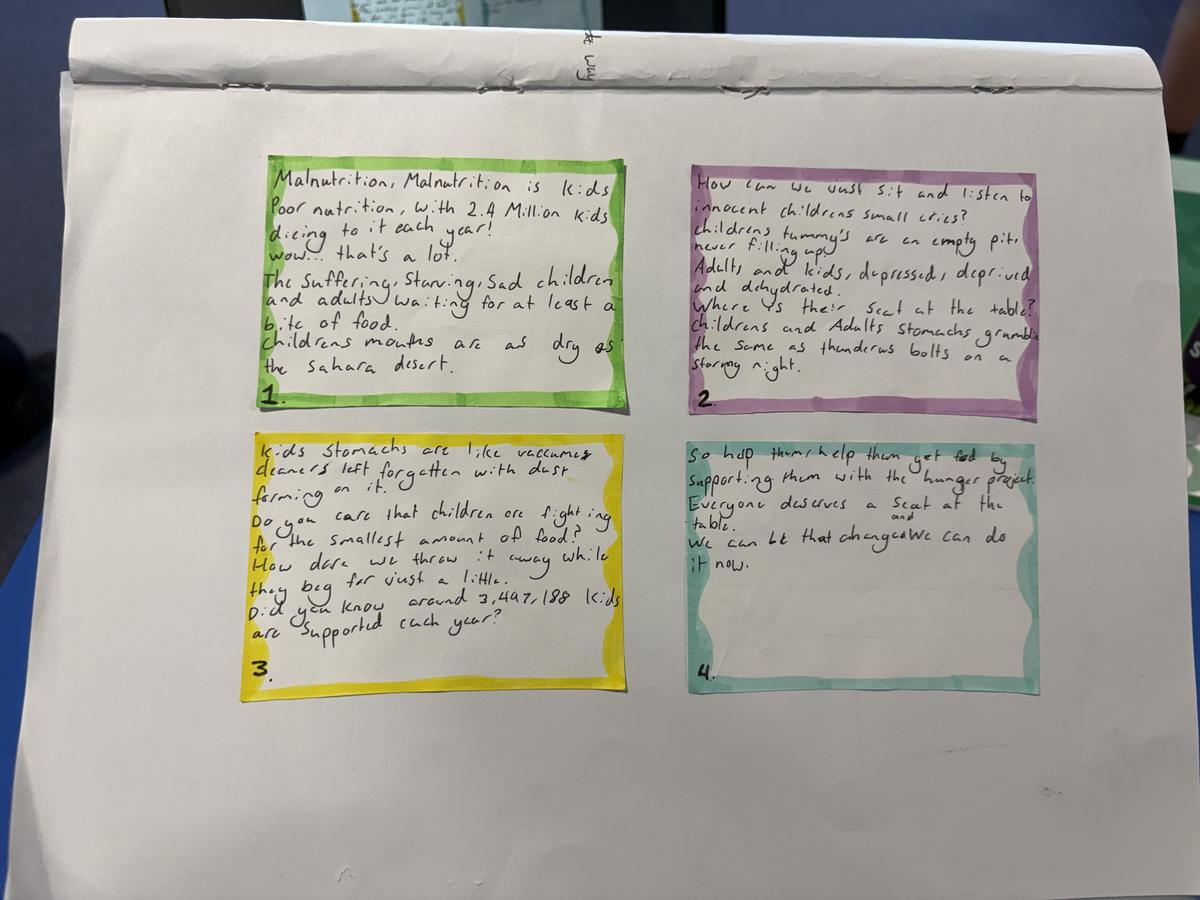 * why
Malnutrition, Malnutrition is kids
Poor nutrition, with 2.4 Million kids
dieing to it each year!
wow... that's a lot.
The Suffering, Starving, Sad children
and adults waiting for at least a
bite of food.
childrens mouths are as dry as
the sahara desert.
1.
How can we just sit and listen to
innocent childrens small cries?
childrens tummy's are an empty pit,
never filling up!
Adults and kids, depressed, deprived
and dehydrated.
Where is their seat at the table?
childrens and Adults stomachs grumble
the same as thunderus bolts on a
stormy night.
2.
Kids stomachs are like vaccumes
cleaners left forgotten with dust
forming on it.
Do you care that children are fighting
for the smallest amount of food?
How dare we throw it away while
they beg for just a little.
Did you know around 3,497,188 kids
are supported each year?
3.
So help them, help them get fed by
supporting them with the hunger project.
Everyone deserves a seat at the
table.
and
We can be that change We can do
it now.
4.